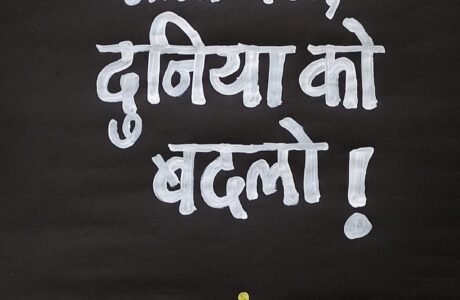 दुनिया को
बदलो !